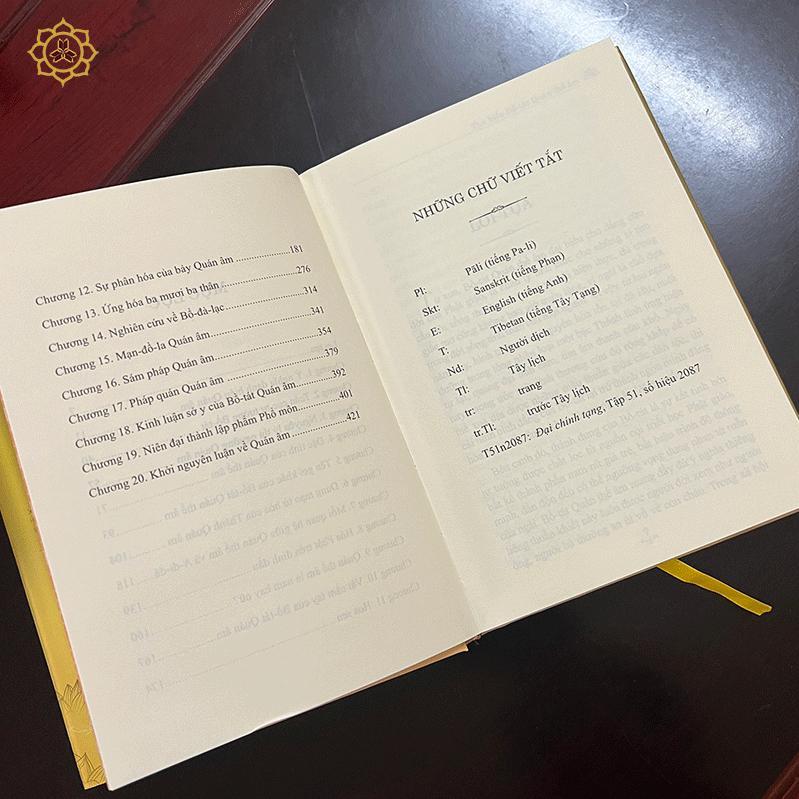 Chương 12. Sự phân hóa của bảy Quán âm ........................181
Chương 13. Ứng hóa ba mươi ba thân ........................276
Chương 14. Nghiên cứu về Bồ-đà-lạc ........................314
Chương 15. Mạn-đồ-la Quán âm ........................341
Chương 16. Sám pháp Quán âm ........................354
Chương 17. Pháp quán Quán âm ........................379
Chương 18. Kinh luận sở y của Bồ-tát Quán âm ........................392
Chương 19. Niên đại thành lập phẩm Phổ môn ........................401
Chương 20. Khởi nguyên luận về Quán âm ........................421
NHỮNG CHỮ VIẾT TẮT
Pl: Pāli (tiếng Pa-li)
Skt: Sanskrit (tiếng Phạn)
E: English (tiếng Anh)
T: Tibetan (tiếng Tây Tạng)
Nd: Người dịch
Tl: Tây lịch
tr: trang
tr.Tl: trước Tây lịch
T51n2087: Đại chính tạng, Tập 51, số hiệu 2087